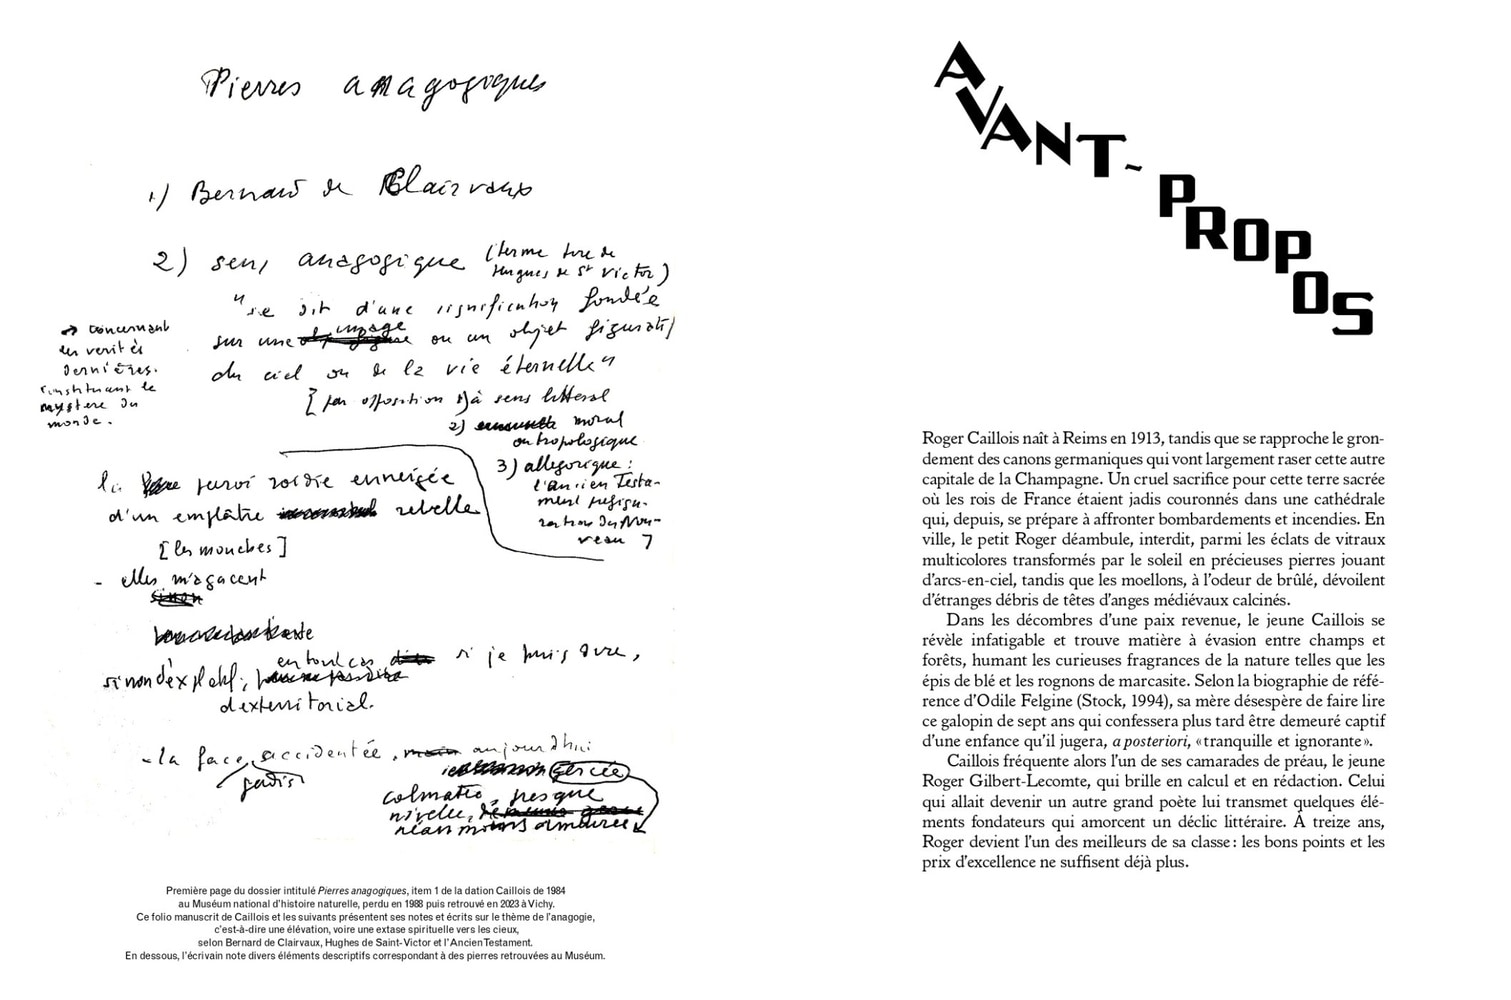 Pierres anagogiques
1) Bernard de Clairvaux
2) sens anagogique (terme tiré de
Hugues de St Victor)
"se dit d'une signification fondée
sur une image ou un objet figuratif
du ciel ou de la vie éternelle"
[par opposition 1) à sens littéral
2) moral
ou tropologique
3) allégorique :
l'ancien Testa-
ment préfigu-
ration du Nou-
veau ]
→ concernant
les vérités
dernières.
constituant le
mystère du
monde.
la paroi roidie enneigée
d'un emplâtre rebelle
[les mouches]
- elles m'agacent
en tout cas si je puis dire,
sinon d'exploit,
d'exterritorial.
- la face accidentée, aujourd'hui
jadis
gercée
colmatée, presque
nivelée,
néanmoins
Première page du dossier intitulé Pierres anagogiques, item 1 de la dation Caillois de 1984
au Muséum national d'histoire naturelle, perdu en 1988 puis retrouvé en 2023 à Vichy.
Ce folio manuscrit de Caillois et les suivants présentent ses notes et écrits sur le thème de l'anagogie,
c'est-à-dire une élévation, voire une extase spirituelle vers les cieux,
selon Bernard de Clairvaux, Hughes de Saint-Victor et l'Ancien Testament.
En dessous, l'écrivain note divers éléments descriptifs correspondant à des pierres retrouvées au Muséum.
AVANT-PROPOS
Roger Caillois naît à Reims en 1913, tandis que se rapproche le gron-
dement des canons germaniques qui vont largement raser cette autre
capitale de la Champagne. Un cruel sacrifice pour cette terre sacrée
où les rois de France étaient jadis couronnés dans une cathédrale
qui, depuis, se prépare à affronter bombardements et incendies. En
ville, le petit Roger déambule, interdit, parmi les éclats de vitraux
multicolores transformés par le soleil en précieuses pierres jouant
d'arcs-en-ciel, tandis que les moellons, à l'odeur de brûlé, dévoilent
d'étranges débris de têtes d'anges médiévaux calcinés.
Dans les décombres d'une paix revenue, le jeune Caillois se
révèle infatigable et trouve matière à évasion entre champs et
forêts, humant les curieuses fragrances de la nature telles que les
épis de blé et les rognons de marcasite. Selon la biographie de réfé-
rence d'Odile Felgine (Stock, 1994), sa mère désespère de faire lire
ce galopin de sept ans qui confessera plus tard être demeuré captif
d'une enfance qu'il jugera, a posteriori, «tranquille et ignorante».
Caillois fréquente alors l'un de ses camarades de préau, le jeune
Roger Gilbert-Lecomte, qui brille en calcul et en rédaction. Celui
qui allait devenir un autre grand poète lui transmet quelques élé-
ments fondateurs qui amorcent un déclic littéraire. À treize ans,
Roger devient l'un des meilleurs de sa classe : les bons points et les
prix d'excellence ne suffisent déjà plus.